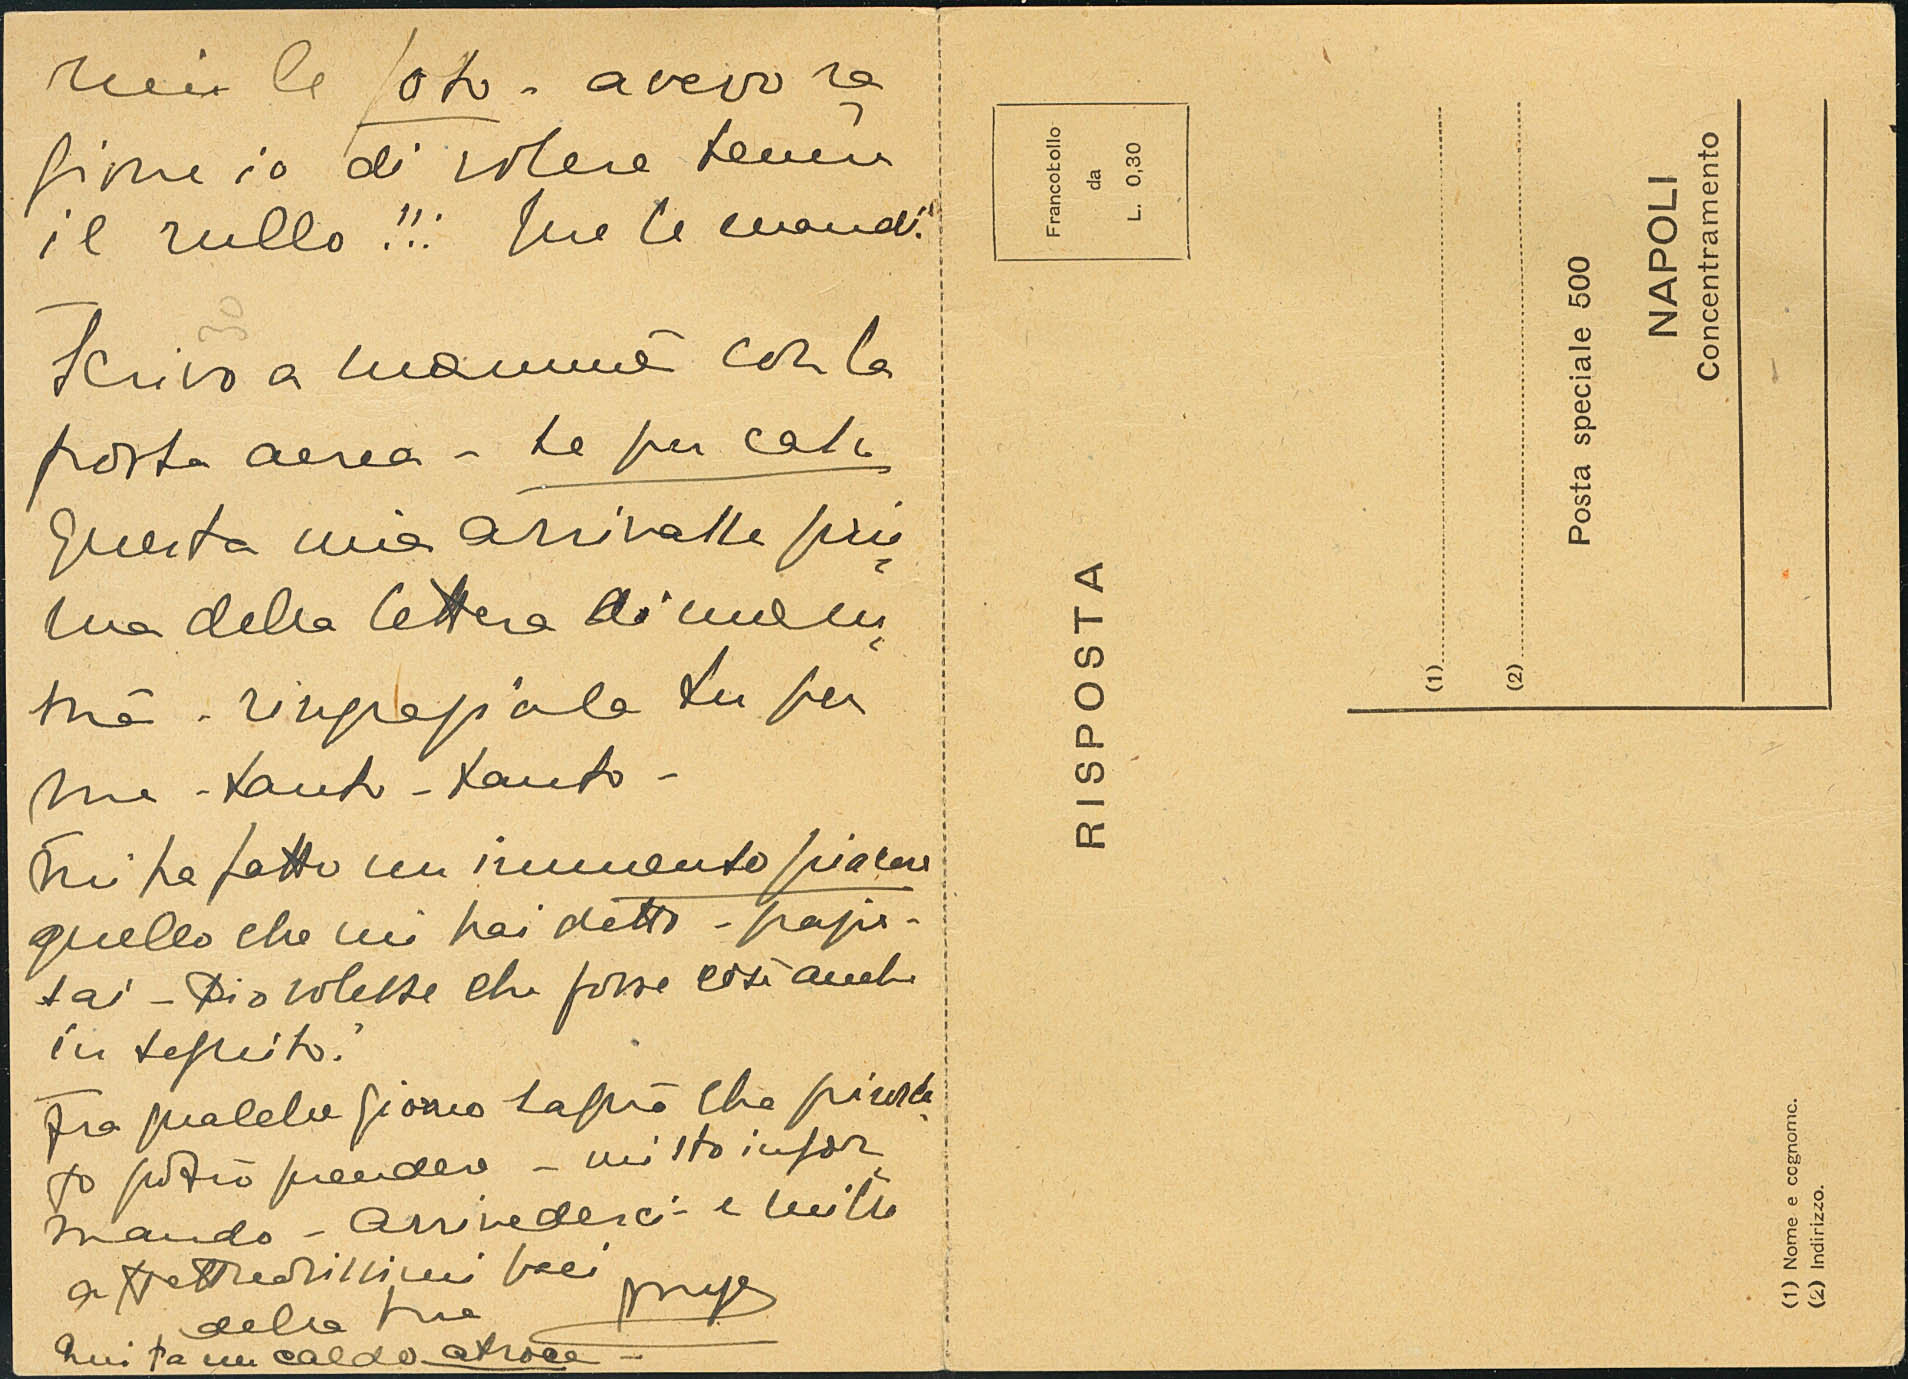 rein le foto - avevo ra
gione io di volere tenere
il rullo!!! Me le mandi!
Scrivo a mammà con la
posta aerea - se per caso
questa mia arrivasse pri
ma della lettera di mam
mà - ringraziala tu per
me - tanto - tanto -
Mi ha fatto un immenso piacere
quello che mi hai detto -
sai - Dio volesse che fosse così anche
in seguito!
Fra qualche giorno saprò che pirosca
fo potrò prendere - mi sto infor
mando - arrivederci - e mille
affettuosissimi baci
della tua
Qui fa un caldo atroce -
RISPOSTA
Francobollo
da
L. 0,30
(1)
(2)
Posta speciale 500
NAPOLI
Concentramento
(1) Nome e cognome.
(2) Indirizzo.